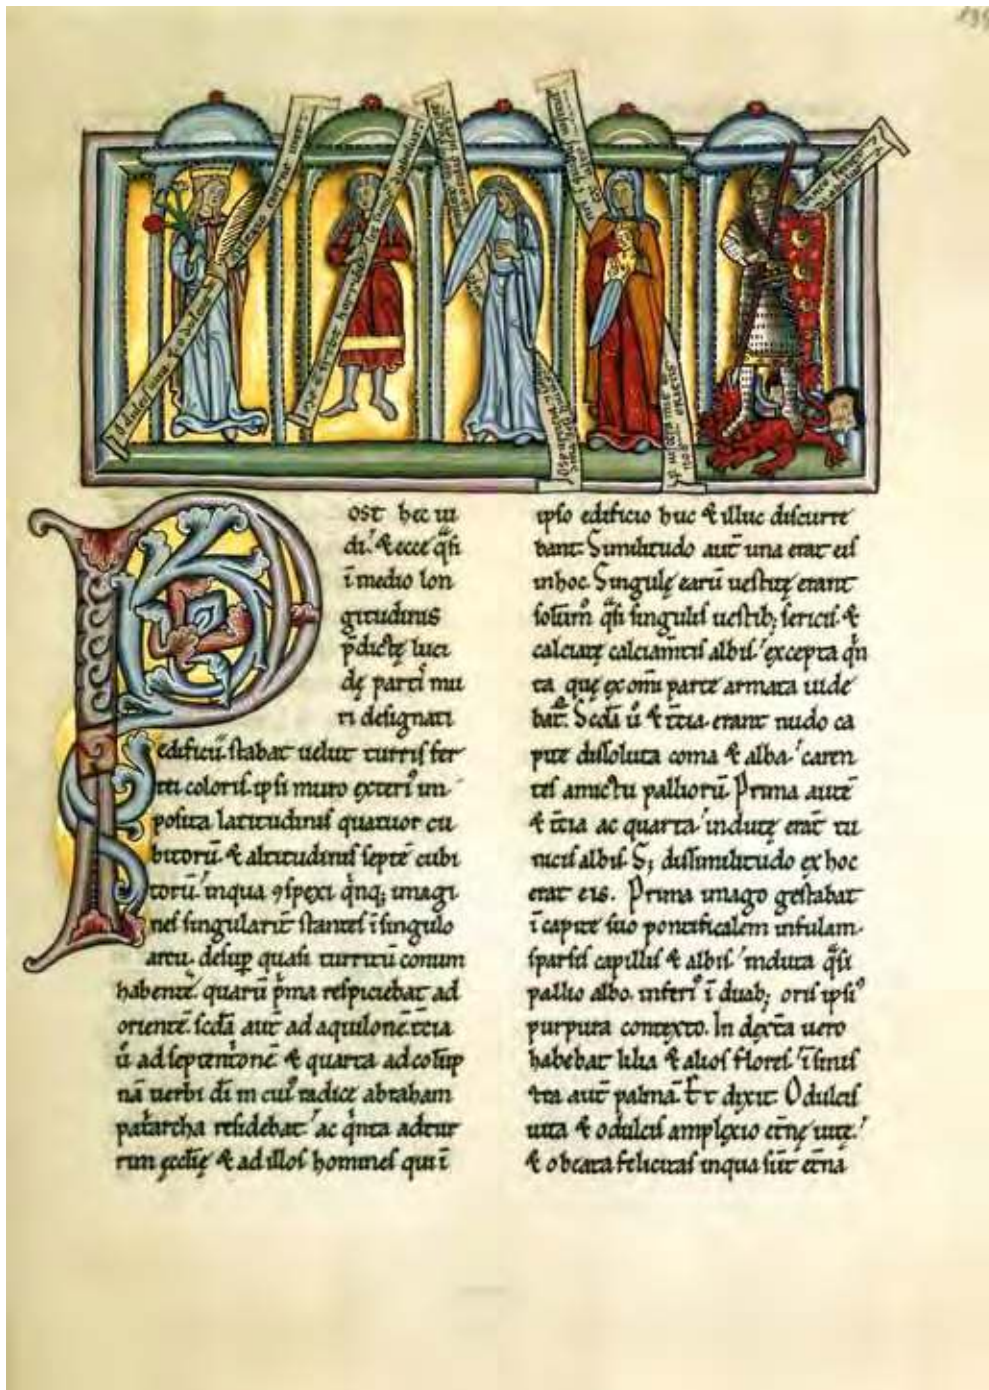 O dulcis uita & o dulcis amplexio eterne uite
ost hec ui
di. & ecce q̄si
ī medio lon
gitudinis
p̄dictę luci
dę parti mu
ri designati
edificii. stabat uelut turris fer
rei coloris. ipsi muro exteri᷒ im
posita latitudinis quatuor cu
bitorū. & altitudinis septē cubi
torū. inqua ꝯspexi q̇nq; imagi
nes singularit̄ stantes ī singulo
arcu. desup̱ quasi turritū conum
habentē. quarū ṗma respiciebat ad
orientē. scđa aut̄ ad aquilonē. t̄cia
ů ad septenṫonē & quarta ad colūp
nā uerbi dī in cui᷒ radice abraham
pat̄archa residebat. ac q̇nta ad tur
rim ęcclię & ad illos homines qui ī
ipso edificio huc & illuc discurre
bant. Similitudo aut̄ una erat eis
in hoc. Singulę earū uestitę erant
solum̊ q̄si singulis uestib; sericis. &
calciatę calciam̄tis albis. excepta q̇n
ta quę ex om̄i parte armata uide
bat᷑. Scđa ů & t̄cia. erant nudo ca
pite dissoluta coma & alba. caren
tes amictu palliorū. Prima autē
& t̄cia ac quarta. indutę erāt tu
nicis albis. S; dissimilitudo ex hoc
erat eis. Prima imago gestabat
ī capite suo pontificalem infulam.
sparsis capillis & albis. induta q̄si
pallio albo. inferi᷒ ī duab; oris ipsi᷒
purpura contexto. In dext̄a uero
habebat lilia & alios flores. ī sinis
tra aut̄ palmā. Et dixit. O dulcis
uita & o dulcis amplexio et̄nę uitę.
& o beata felicitas inqua sūt et̄na